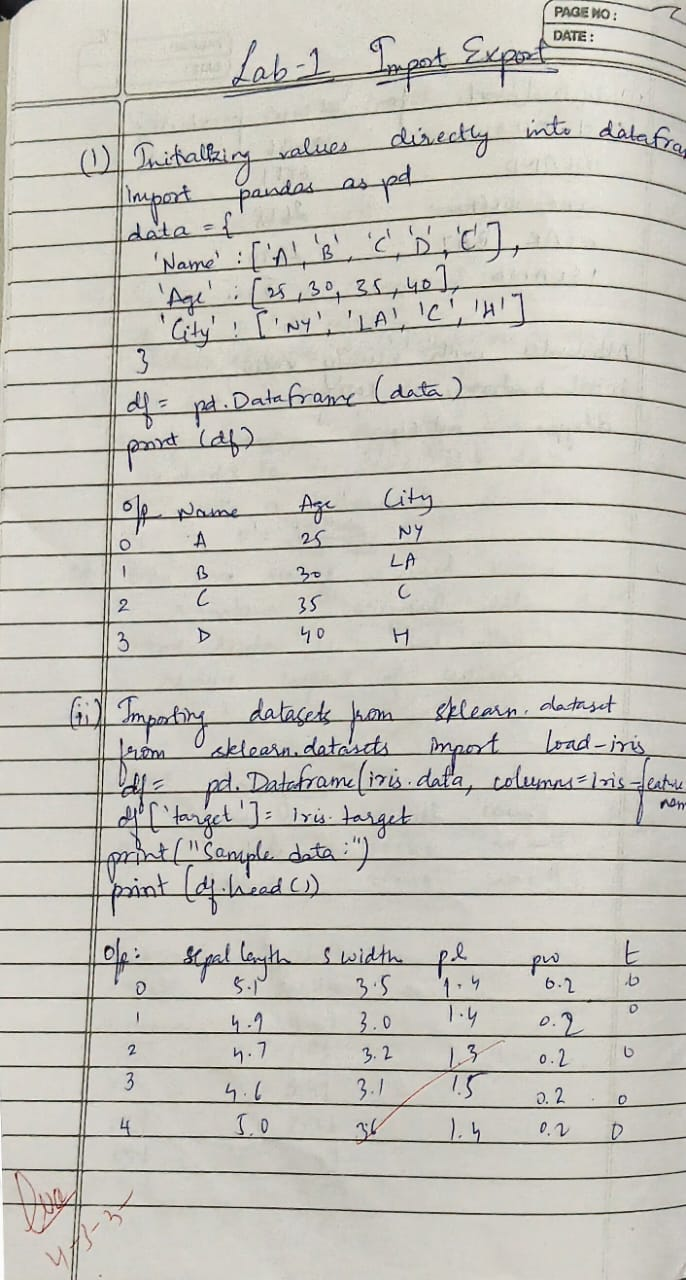 PAGE NO:
DATE:
Lab-1 Import Export
(1) Initializing values directly into datafra
import pandas as pd
data = {
'Name' : ['A', 'B', 'C', 'D', 'E'],
'Age' : [25, 30, 35, 40],
'City' : ['NY', 'LA', 'C', 'H']
}
df = pd.Dataframe (data)
print (df)
o/p Name Age City
0 A 25 NY
1 B 30 LA
2 C 35 C
3 D 40 H
(ii) Importing datasets from sklearn.dataset
from sklearn.datasets import load-iris
df = pd.Dataframe(iris.data, columns=iris-feature
nam
df['target'] = iris.target
print("Sample data:")
print (df.head())
o/p: sepal length s width pl pw t
0 5.1 3.5 1.4 0.2 0
1 4.9 3.0 1.4 0.2 0
2 4.7 3.2 1.3 0.2 0
3 4.6 3.1 1.5 0.2 0
4 5.0 36 1.4 0.2 0